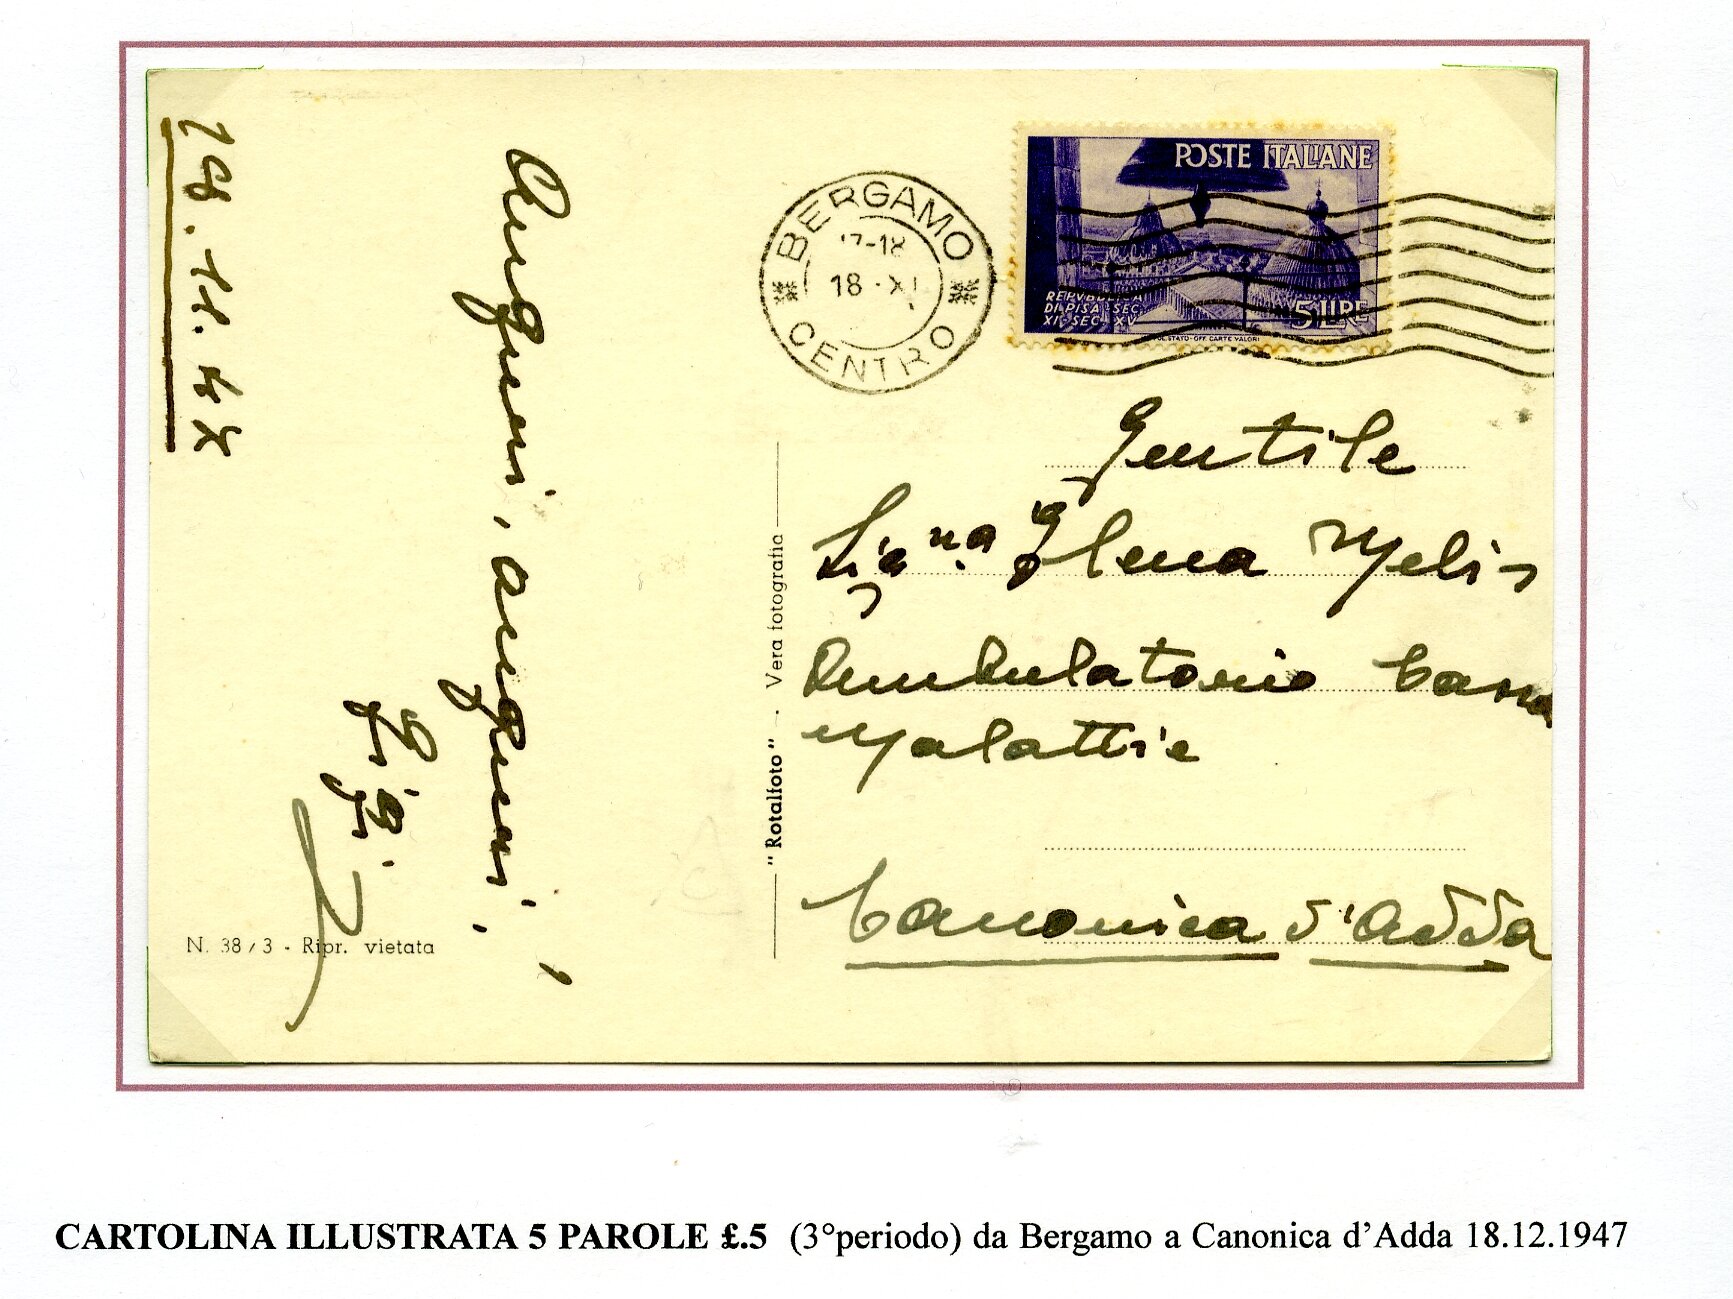 18.11.47
Auguri, auguri,
Gigi
N. 38/3 - Ripr. vietata
"Rotalfoto" - Vera fotografia
BERGAMO
17-18
18·XI
CENTRO
POSTE ITALIANE
REPVBBLICA
DI PISA·SEC.
XI·SEC·XV
5 LIRE
ST. STATO-OFF. CARTE VALORI
Gentile
Sig.na Elena Melis
Ambulatorio Cassa
Malattie
Canonica d'Adda
CARTOLINA ILLUSTRATA 5 PAROLE £.5 (3°periodo) da Bergamo a Canonica d'Adda 18.12.1947